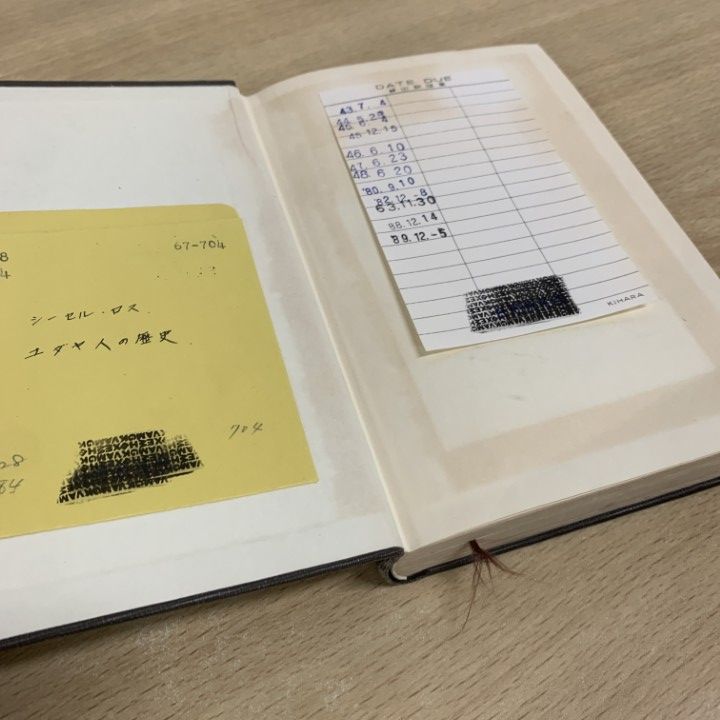 67-704
シーセル・ロス
ユダヤ人の歴史
704
DATE DUE
43.7. 4
44.5.29
45.6. 4
45.12.15
46. 6. 10
47. 6. 23
48. 6. 20
'80. 9.10
'82.12.-8
63.11.30
88.12.14
89.12.-5
KIHARA